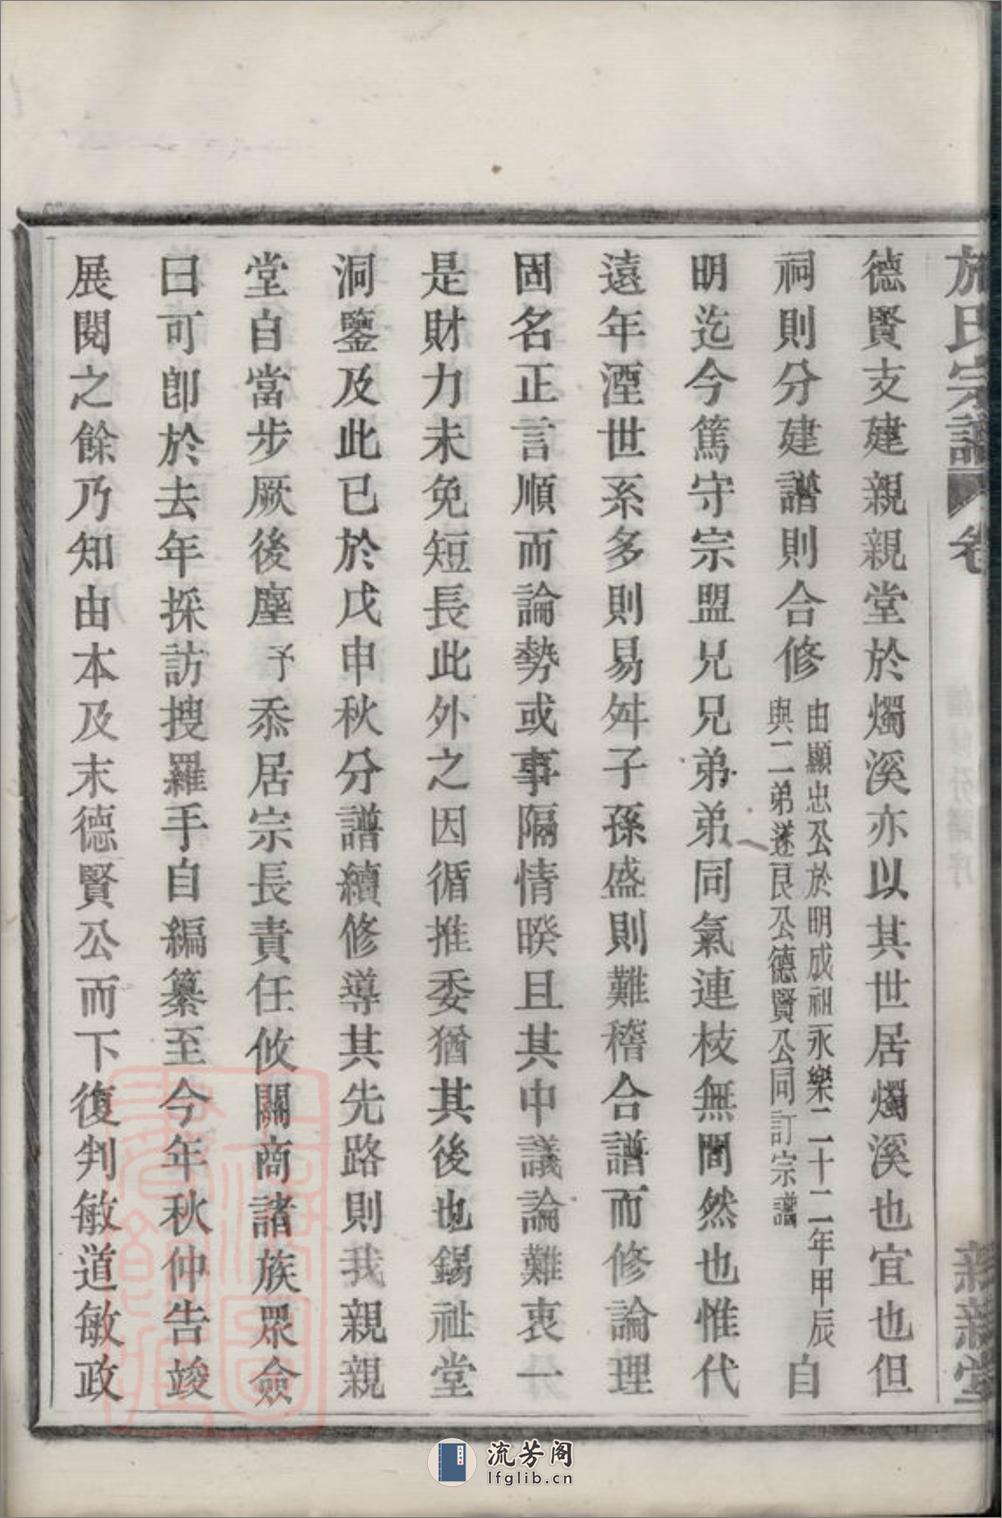 施氏宗譜 卷
親親堂
德賢支建親親堂於燭溪亦以其世居燭溪也宜也但
祠則分建譜則合修由顯忠公於明成祖永樂二十二年甲辰與二弟遂良公德賢公同訂宗譜自
明迄今篤守宗盟兄兄弟弟同氣連枝無間然也惟代
遠年湮世系多則易舛子孫盛則難稽合譜而修論理
固名正言順而論勢或事隔情暌且其中議論難衷一
是財力未免短長此外之因循推委猶其後也錫祉堂
洞鑒及此已於戊申秋分譜續修導其先路則我親親
堂自當步厥後塵予忝居宗長責任攸關商諸族眾僉
曰可卽於去年採訪搜羅手自編纂至今年秋仲告竣
展閱之餘乃知由本及末德賢公而下復判敏道敏政
流芳阁
lfglib.cn